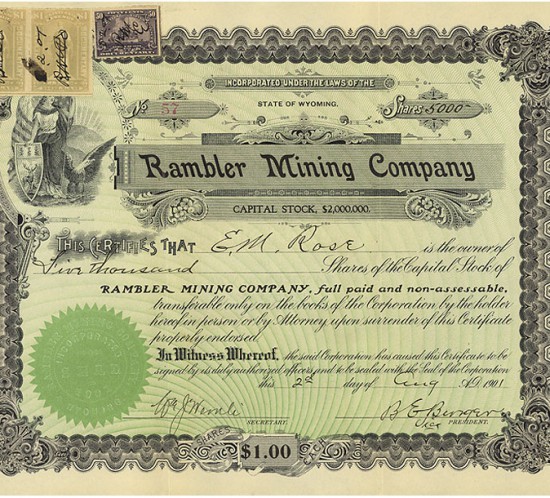 INCORPORATED UNDER THE LAWS OF THE
No 57
STATE OF WYOMING.
Shares 5000
Rambler Mining Company
CAPITAL STOCK, $2,000,000.
THIS CERTIFIES THAT E. M. Rose is the owner of
Five thousand Shares of the Capital Stock of
RAMBLER MINING COMPANY, full paid and non-assessable,
transferable only on the books of the Corporation by the holder
hereof in person or by Attorney, upon surrender of this Certificate
properly endorsed.
In Witness Whereof, the said Corporation has caused this Certificate to be
signed by its duly authorized officers, and to be sealed with the Seal of the Corporation
this 2nd day of Aug A.D. 1901
SECRETARY.
Vice PRESIDENT.
SHARES
$1.00